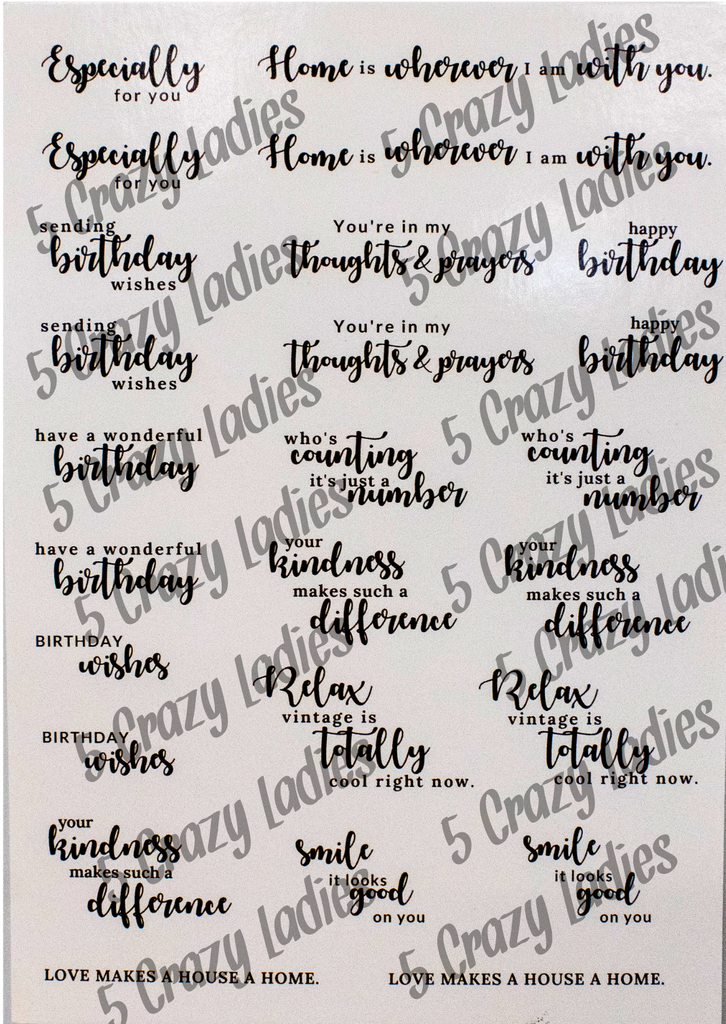 Especially
for you
Home is wherever I am with you.
Especially
for you
Home is wherever I am with you.
sending
birthday
wishes
You're in my
thoughts & prayers
happy
birthday
sending
birthday
wishes
You're in my
thoughts & prayers
happy
birthday
have a wonderful
birthday
who's
counting
it's just a
number
who's
counting
it's just a
number
have a wonderful
birthday
your
kindness
makes such a
difference
your
kindness
makes such a
difference
BIRTHDAY
wishes
Relax
vintage is
totally
cool right now.
Relax
vintage is
totally
cool right now.
BIRTHDAY
wishes
your
kindness
makes such a
difference
smile
it looks
good
on you
smile
it looks
good
on you
LOVE MAKES A HOUSE A HOME.
LOVE MAKES A HOUSE A HOME.
5 Crazy Ladies
5 Crazy Ladies
5 Crazy Ladies
5 Crazy Ladies
5 Crazy Ladies
5 Crazy Ladies
5 Crazy Ladies
5 Crazy Ladies
5 Crazy Ladies
5 Crazy Ladies
5 Crazy Ladies
5 Crazy Ladies
5 Crazy Ladies
5 Crazy Ladies